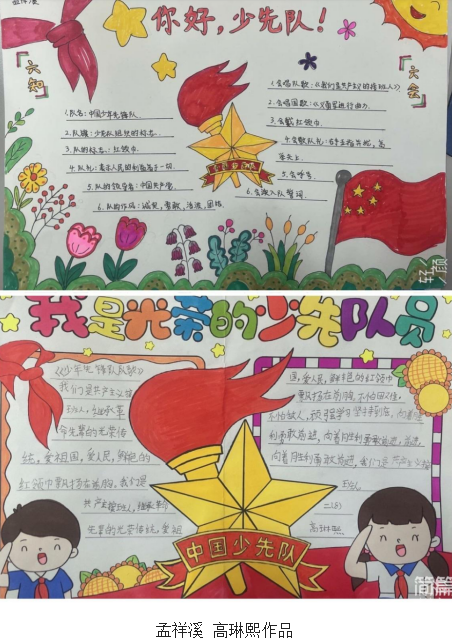 孟祥溪
你好,少先队!
「六知」
1.队名:中国少年先锋队.
2.队旗:少先队组织的标志.
3.队的标志:红领巾.
4.队礼:表示人民的利益高于一切.
5.队的领导者:中国共产党.
6.队的作风:诚实,勇敢,活泼,团结.
「六会」
1.会唱队歌:《我们是共产主义的接班人》
2.会唱国歌:《义勇军进行曲》.
3.会戴红领巾.
4.会敬队礼:右手五指并拢,高
举头上.
5.会呼号.
6.会背入队誓词.
中国少先队
轻颜
我是光荣的少先队员
《少年先锋队队歌》
我们是共产主义接
班人,继承革
命先辈的光荣传
统,爱祖国,爱人民,鲜艳的
红领巾飘扬在前胸,我们是
共产主义接班人,继承革命
先辈的光荣传统,爱祖
国,爱人民,鲜艳的红领巾
飘扬在前胸,不怕困难,
不怕敌人,顽强学习坚决斗争,向着胜
利勇敢前进,向着胜利勇敢前进,前进,
向着胜利勇敢前进,我们是共产主义接
班人
高琳熙
中国少先队
简篇
孟祥溪 高琳熙作品